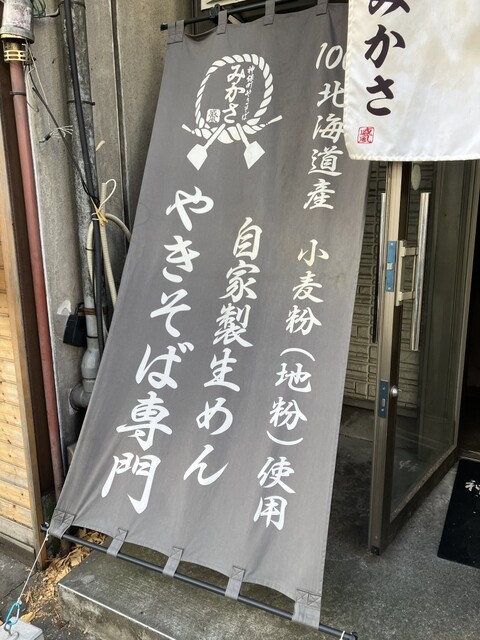 みかさ
100
北海道産 小麦粉(地粉)使用
自家製生めん
やきそば専門
神保町やきそば
みかさ